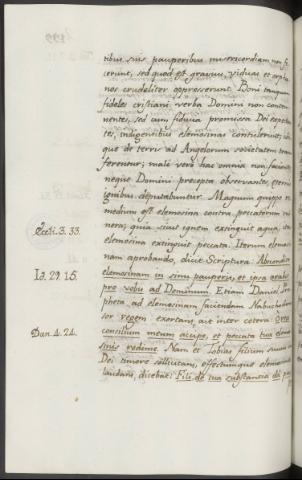 tibus suis pauporibus misericordiam non fe
cerunt, sed quod est gravius, viduas et orpha
nos crudeliter oppresserunt. Boni tamquam
fideles cristiani verba Domini non contem
nentes, sed cum fiducia promissa Dei expectan
tes, indigentibus elemosinas contulerunt; id
que de terris ad Angelorum societatem trans
ferentur; mali vero hac omnia non facientes
neque Domini precepta observantes, eternis
ignibus deputabuntur. Magnum quippe re
medium est elemosina contra peccatorum vul
nera; quia sicut ignem extinguit aqua, ita
Eccli. 3. 33.
elemosina extinguit peccata. Iterum elemosi
nam aprobando, dicit Scriptura: Abscondite
elemosinam in sinu pauperis, et ipsa orabit
Id. 29. 15.
pro vobis ad Dominum. Etiam Daniel pro
pheta ad elemosinam faciendam Nabuchodono
sor regem exortans, ait inter cetera: Rex
Dan. 4. 24.
consilium meum accipe, et peccata tua elemo
sinis redime. Nam et Tobias filium suum in
Dei timore sollicitans, effectumque elemosine
laudans, dicebat: Fili, de tua substantia da pau